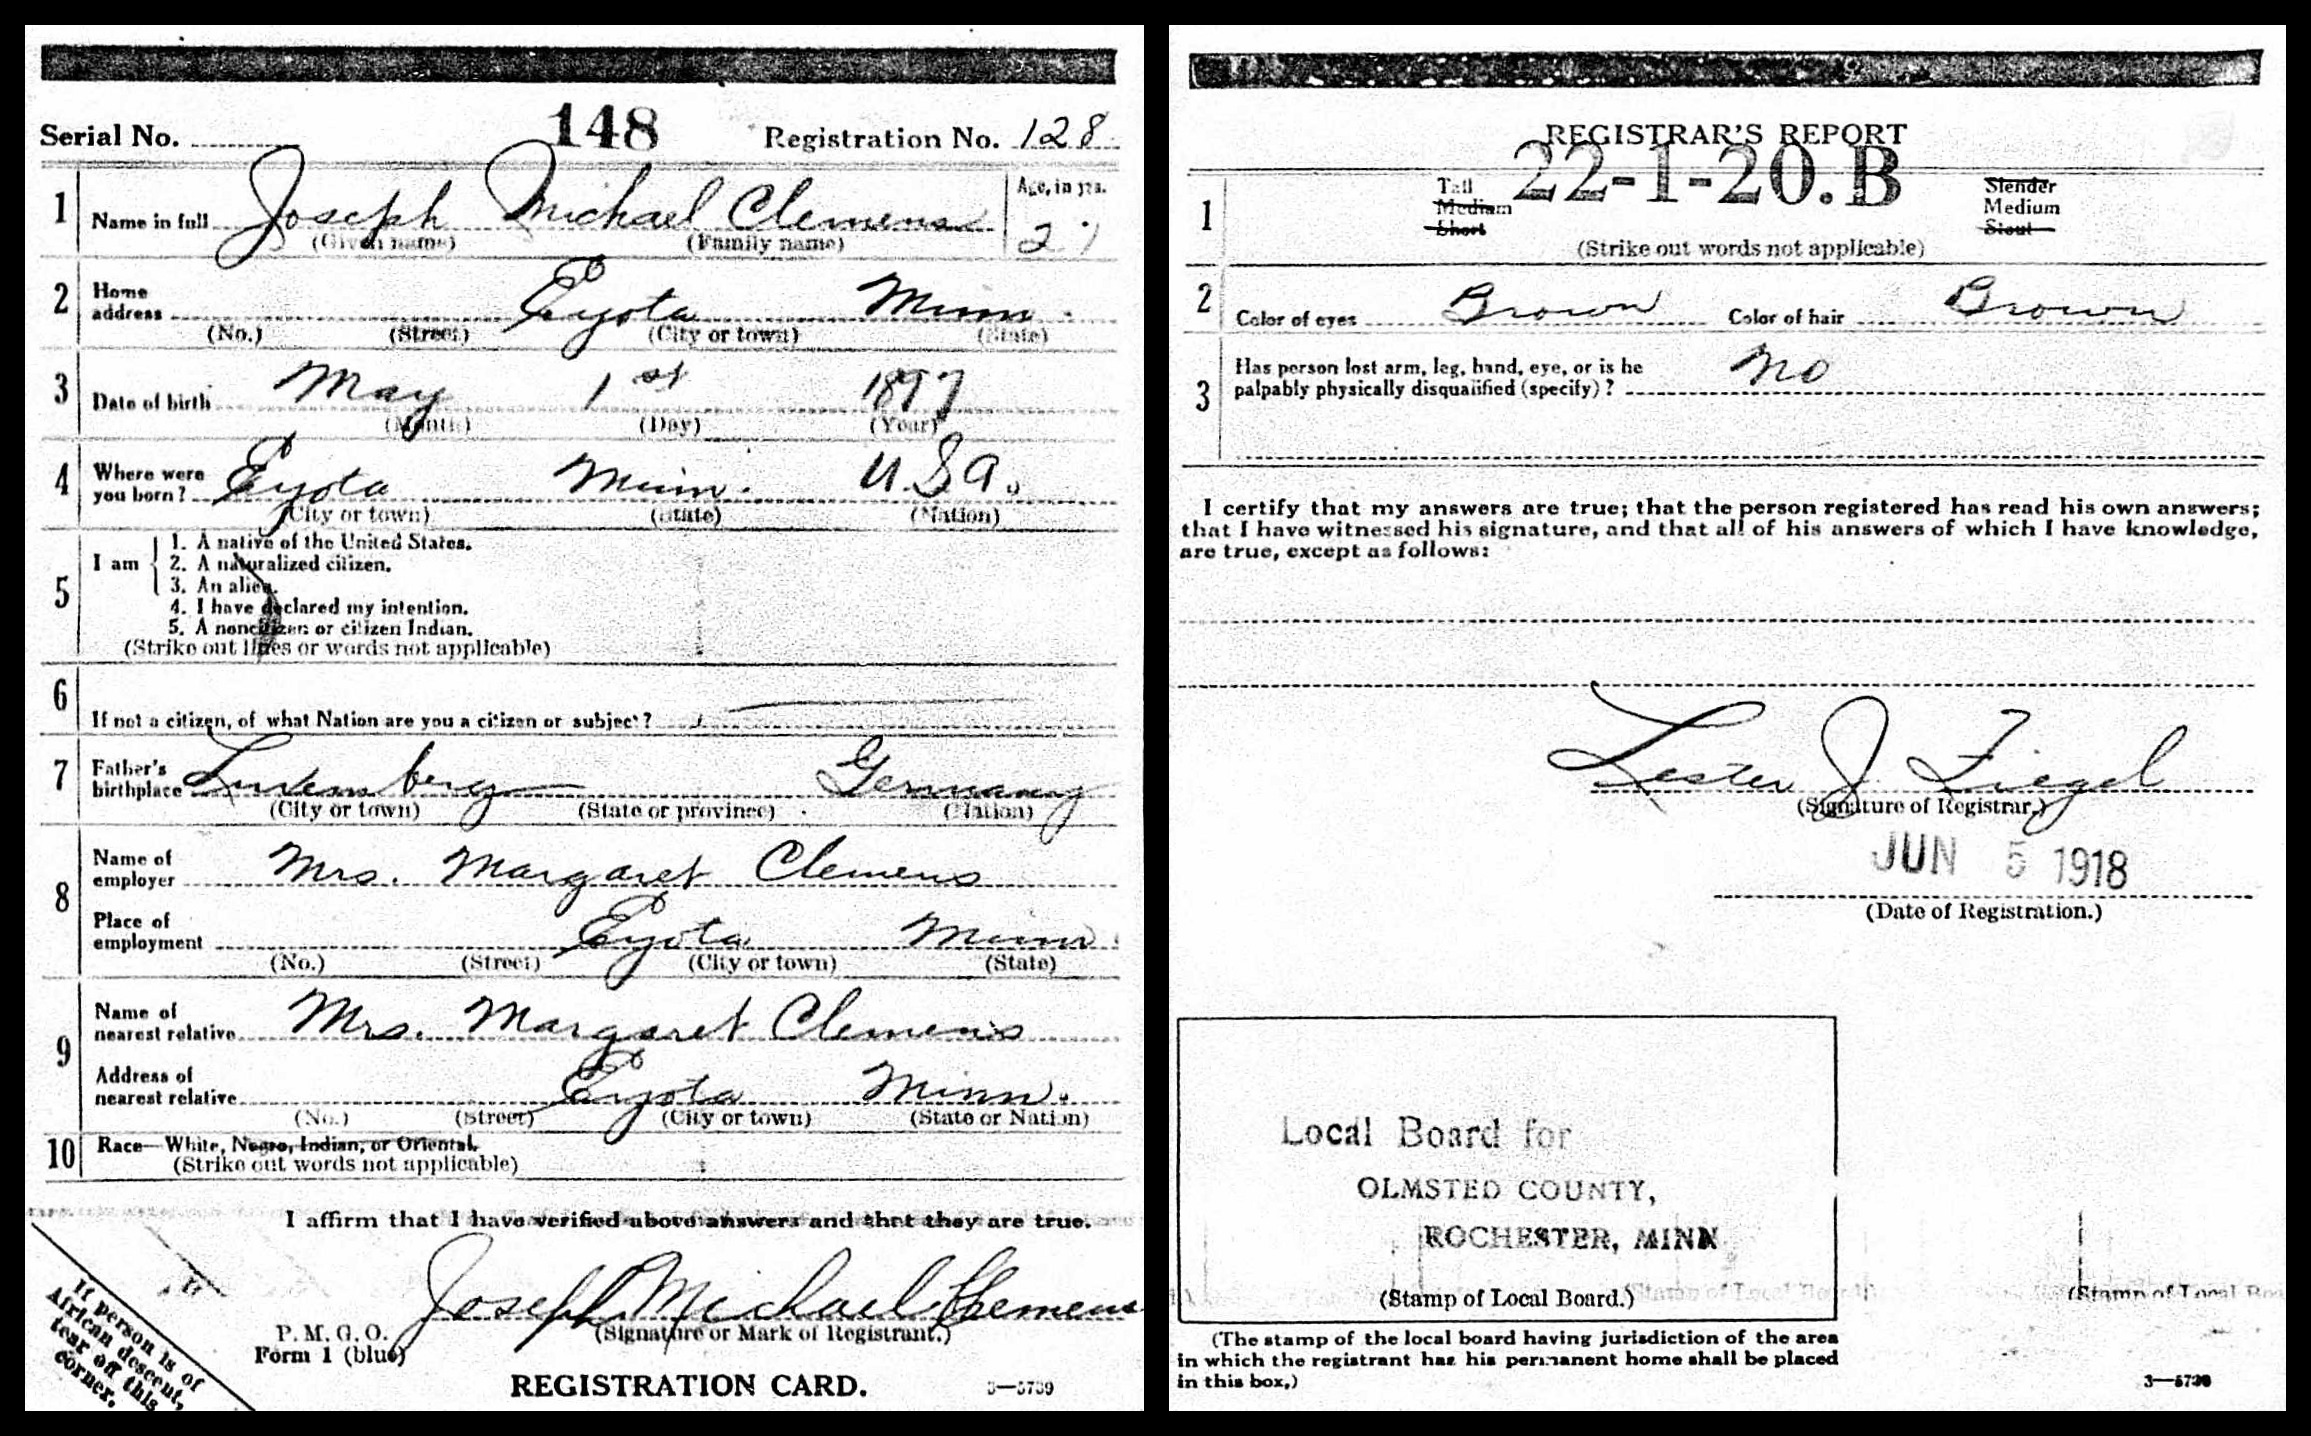 Serial No. 148 Registration No. 128
1 Name in full Joseph Michael Clemens Age, in yrs. 21
(Given name) (Family name)
2 Home address Eyota Minn.
(No.) (Street) (City or town) (State)
3 Date of birth May 1st 1897
(Month) (Day) (Year)
4 Where were you born? Eyota Minn. U.S.A.
(City or town) (State) (Nation)
5 I am
1. A native of the United States.
2. A naturalized citizen.
3. An alien.
4. I have declared my intention.
5. A noncitizen or citizen Indian.
(Strike out lines or words not applicable)
6 If not a citizen, of what Nation are you a citizen or subject?
7 Father's birthplace Luxemberg Germany
(City or town) (State or province) (Nation)
8 Name of employer Mrs. Margaret Clemens
Place of employment Eyota Minn.
(No.) (Street) (City or town) (State)
9 Name of nearest relative Mrs. Margaret Clemens
Address of nearest relative Eyota Minn.
(No.) (Street) (City or town) (State or Nation)
10 Race—White, Negro, Indian, or Oriental.
(Strike out words not applicable)
I affirm that I have verified above answers and that they are true.
Joseph Michael Clemens
(Signature or Mark of Registrant.)
P. M. G. O.
Form 1 (blue)
REGISTRATION CARD. 3—5739
If person is of
African descent,
tear off this
corner.
REGISTRAR'S REPORT
22-1-20. B
1 Tall Slender
Medium Medium
Short Stout
(Strike out words not applicable)
2 Color of eyes Brown Color of hair Brown
3 Has person lost arm, leg, hand, eye, or is he
palpably physically disqualified (specify)? No
I certify that my answers are true; that the person registered has read his own answers;
that I have witnessed his signature, and that all of his answers of which I have knowledge,
are true, except as follows:
Lester J. Fiegel
(Signature of Registrar.)
JUN 5 1918
(Date of Registration.)
Local Board for
OLMSTED COUNTY,
ROCHESTER, MINN
(Stamp of Local Board.)
(The stamp of the local board having jurisdiction of the area
in which the registrant has his permanent home shall be placed
in this box.)
3—5739